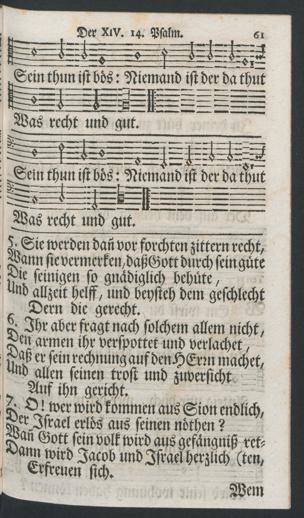 Der XIV. 14. Psalm. 61
Sein thun ist bös: Niemand ist der da thut
Was recht und gut.
Sein thun ist bös: Niemand ist der da thut
Was recht und gut.
5. Sie werden dañ vor forchten zittern recht,
Wann sie vermerken, daß Gott durch sein güte
Die seinigen so gnädiglich behüte,
Und allzeit helff, und beysteh dem geschlecht
Dern die gerecht.
6. Ihr aber fragt nach solchem allem nicht,
Den armen ihr verspottet und verlachet,
Daß er sein rechnung auf den HErrn machet,
Und allen seinen trost und zuversicht
Auf ihn gericht.
7. O! wer wird kommen aus Sion endlich,
Der Israel erlös aus seinen nöthen?
Wañ Gott sein volk wird aus gefängniß ret-
Dann wird Jacob und Israel herzlich (ten,
Erfreuen sich.
Wem